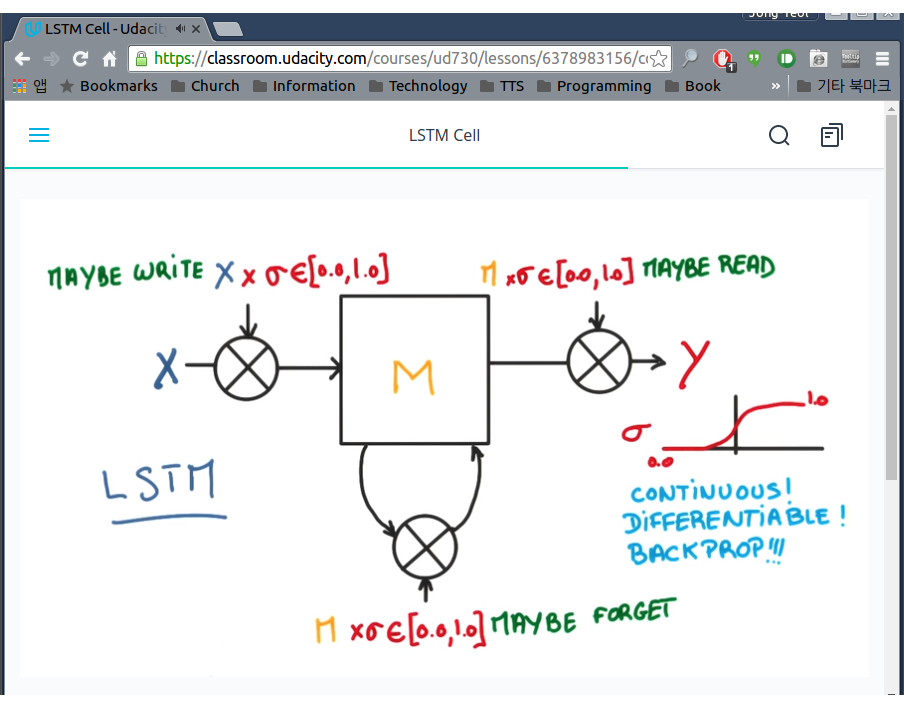 Jong Yeol
LSTM Cell - Udacit
https://classroom.udacity.com/courses/ud730/lessons/6378983156/c
1
앱 Bookmarks Church Information Technology TTS Programming Book » 기타 북마크
LSTM Cell
MAYBE WRITE X x σ∈[0.0,1.0]
M xσ∈[0.0,1.0] MAYBE READ
X
M
Y
σ
1.0
0.0
LSTM
CONTINUOUS!
DIFFERENTIABLE!
BACKPROP!!!
M xσ∈[0.0,1.0] MAYBE FORGET